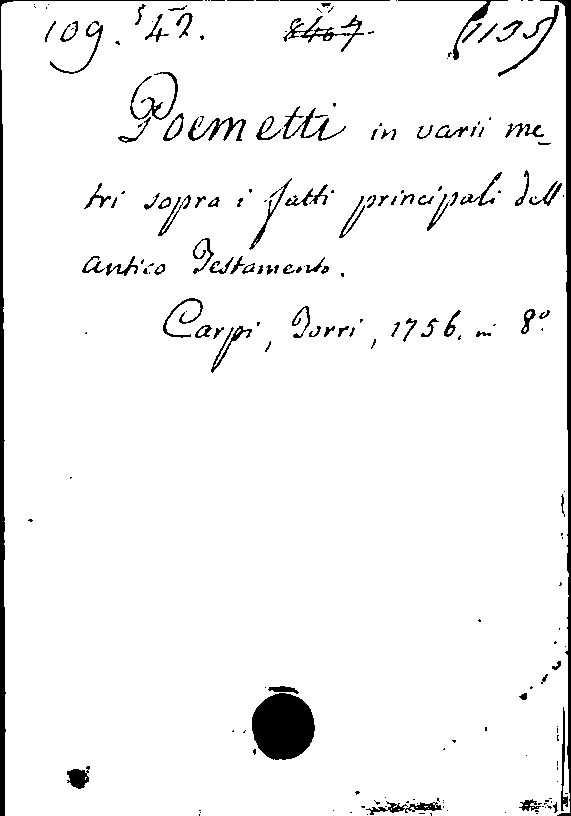 109. 5 42. 8467 (1135)
Poemetti in varii me-
tri sopra i fatti principali dell'
antico Testamento.
Carpi, Torri, 1756. in 8º.